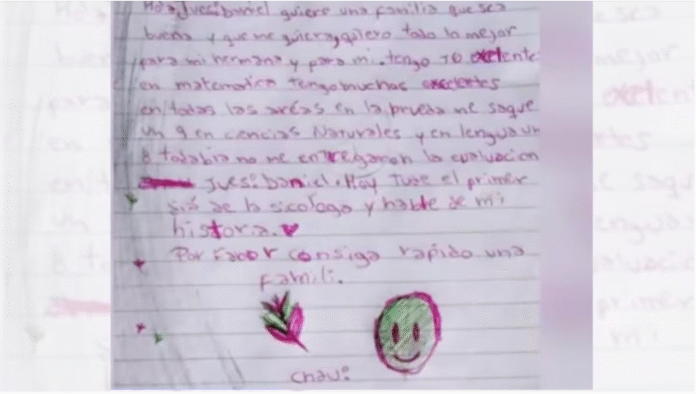 Hola Juez: Daniel quiere una familia que sea
buena y que me quiera, quiero todo lo mejor
para mi hermana y para mi. tengo 10 exelente
en matematica Tengo muchas exelentes
en todas las aréas en la prueba me saque
un 9 en ciencias Naturales y en lengua un
8 todabia no me entregaron la evaluacion
Juesi Daniel. Hoy Tuve el primer
diá de la sicologa y hable de mi
historia.
Por Favor consiga rapido una
Famili.
chau: